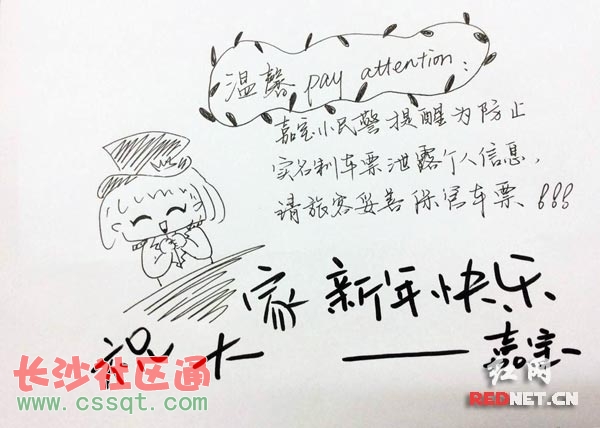 温馨 pay attention:
嘉宝小民警提醒为防止
实名制车票泄露个人信息,
请旅客妥善保管车票!!!
祝大家新年快乐
——嘉宝
长沙社区通
www.cssqt.com
红网
REDNET.CN